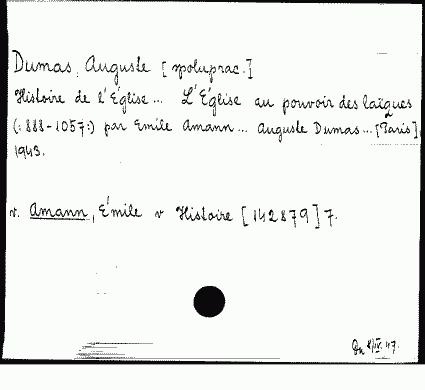 Dumas, Auguste [spoluprac.]
Histoire de l'Église... L'Église au pouvoir des laïques
(:888-1057:) par Emile Amann... Auguste Dumas...[Paris]
1943.
v. Amann, Émile v Histoire [142879] 7.
IV. 47.